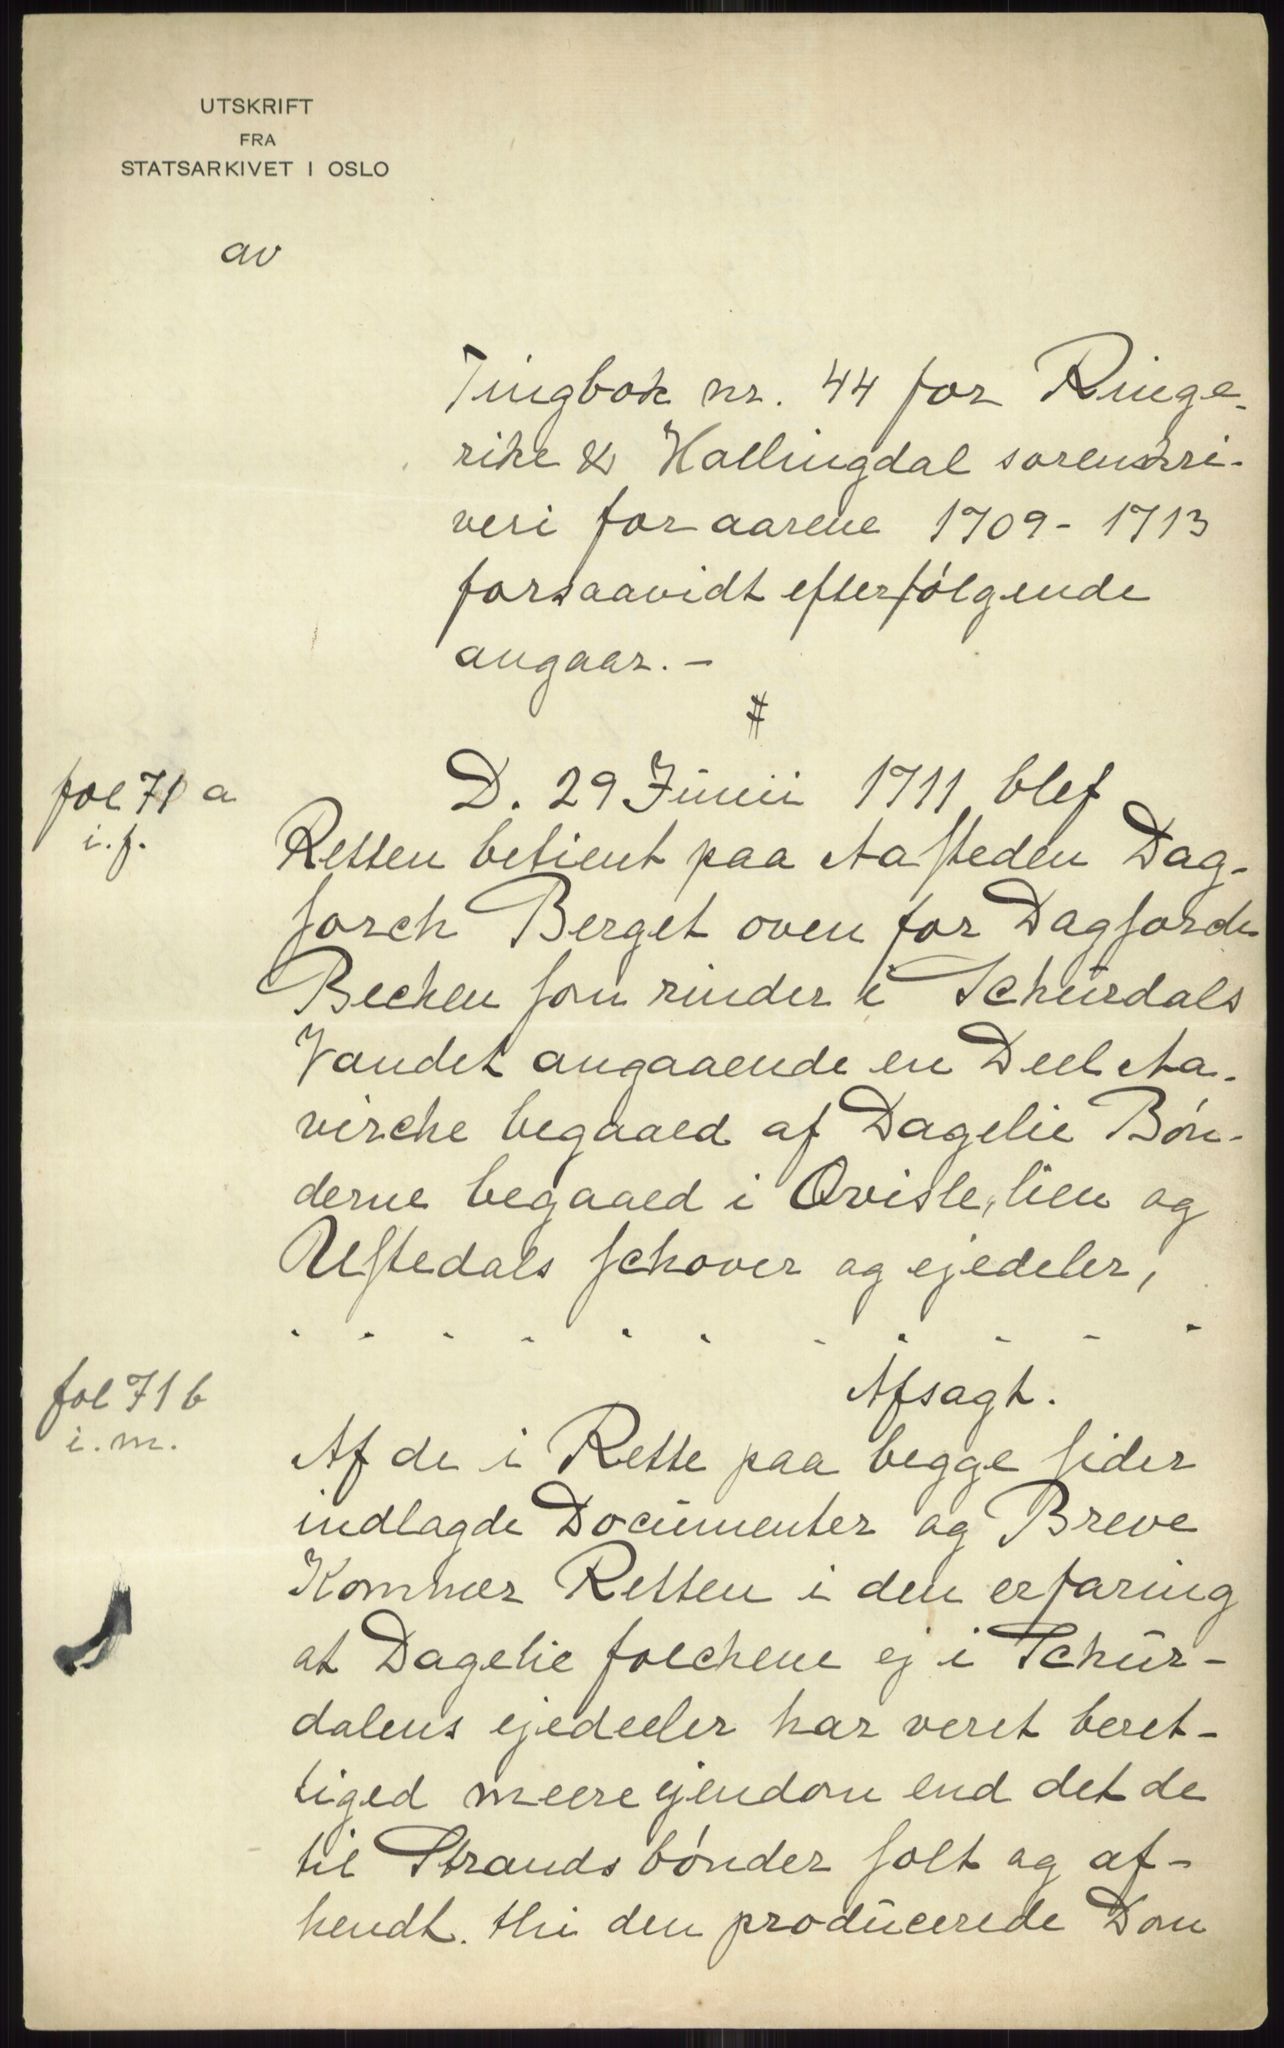 UTSKRIFT
FRA
STATSARKIVET I OSLO
av
Tingbok nr. 44 for Ringe-
rike & Hallingdal sorenskri-
veri for aarene 1709-1713
forsaavidt efterfølgende
angaar.-
#
fol 71 a
i.f.
D. 29 Junii 1711 blef
Retten betient paa Aasteden Dag-
sorch Berget oven for Dagsorch
Becken som rinder i Schurdals
Vandet angaaende en Deel Aa-
virche begaaed af Dagelie Bøn-
derne begaaed i Qvisle, lien og
Ustedals schover og ejedeler,
. . . . . . . . . . .
Afsagt.
fol 71 b
i.m.
Af de i Rette paa begge sider
indlagde Documenter og Breve
Kommer Retten i den erfaring
at Dagelie folchene ej i Schur-
dalens ejedeeler har veret beret-
tiged meere ejendom end det de
til Strands bønder solt og af-
hendt. thi den producerede Dom